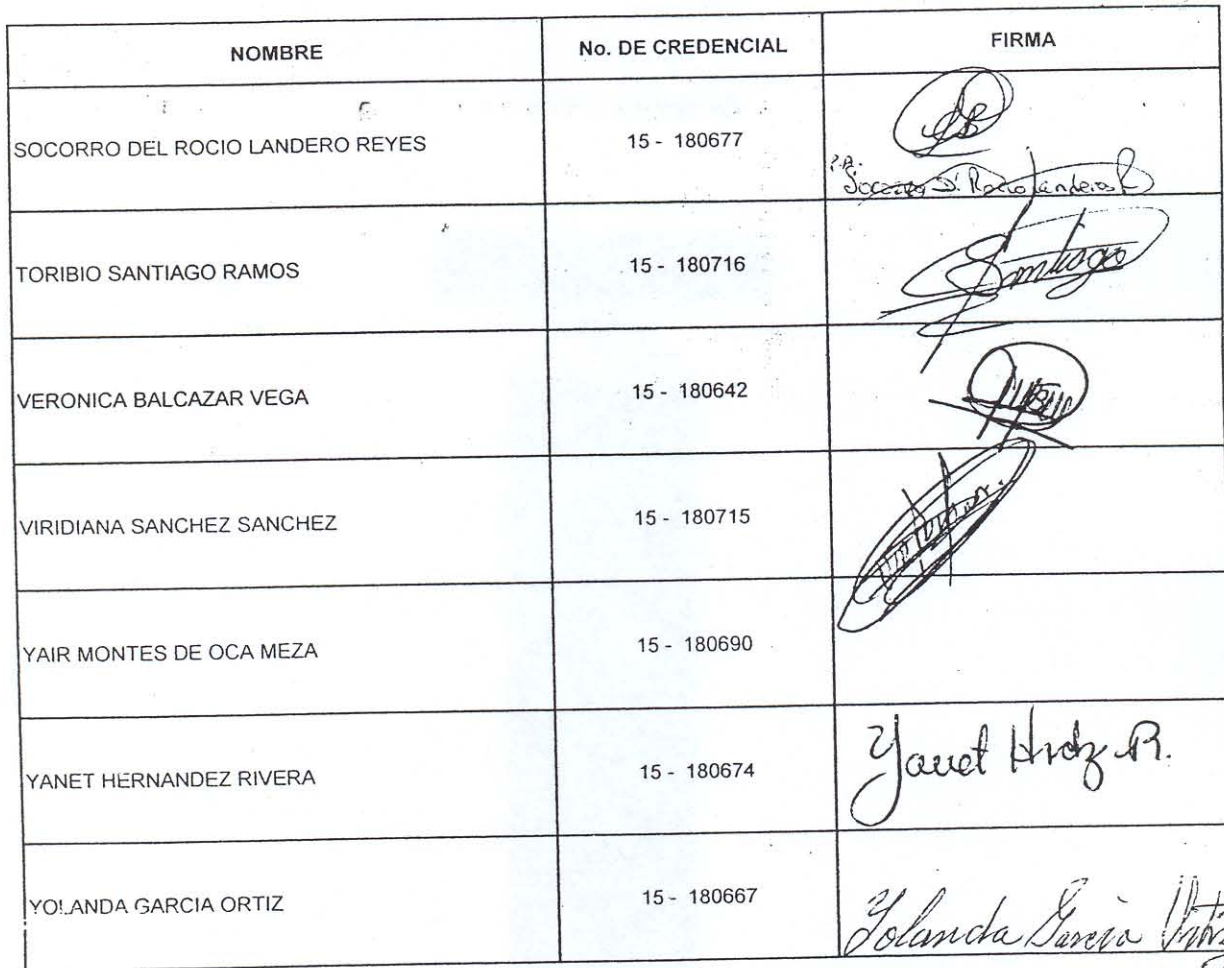 NOMBRE No. DE CREDENCIAL FIRMA
SOCORRO DEL ROCIO LANDERO REYES 15 - 180677
P.A.
Socorro D'l Rocio Landeros R
TORIBIO SANTIAGO RAMOS 15 - 180716 Santiago
VERONICA BALCAZAR VEGA 15 - 180642
VIRIDIANA SANCHEZ SANCHEZ 15 - 180715
YAIR MONTES DE OCA MEZA 15 - 180690
YANET HERNANDEZ RIVERA 15 - 180674 Yanet Hrdz R.
YOLANDA GARCIA ORTIZ 15 - 180667 Yolanda Garcia Ortiz